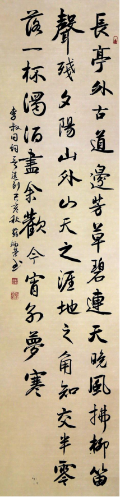 長亭外古道邊芳草碧連天晚風拂柳笛
聲殘夕陽山外山天之涯地之角知交半零
落一杯濁酒盡余歡今宵别夢寒
李叔同詞